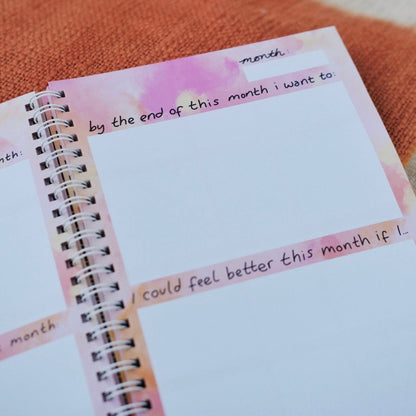 month:
by the end of this month i want to:
I could feel better this month if I...
nth:
month: